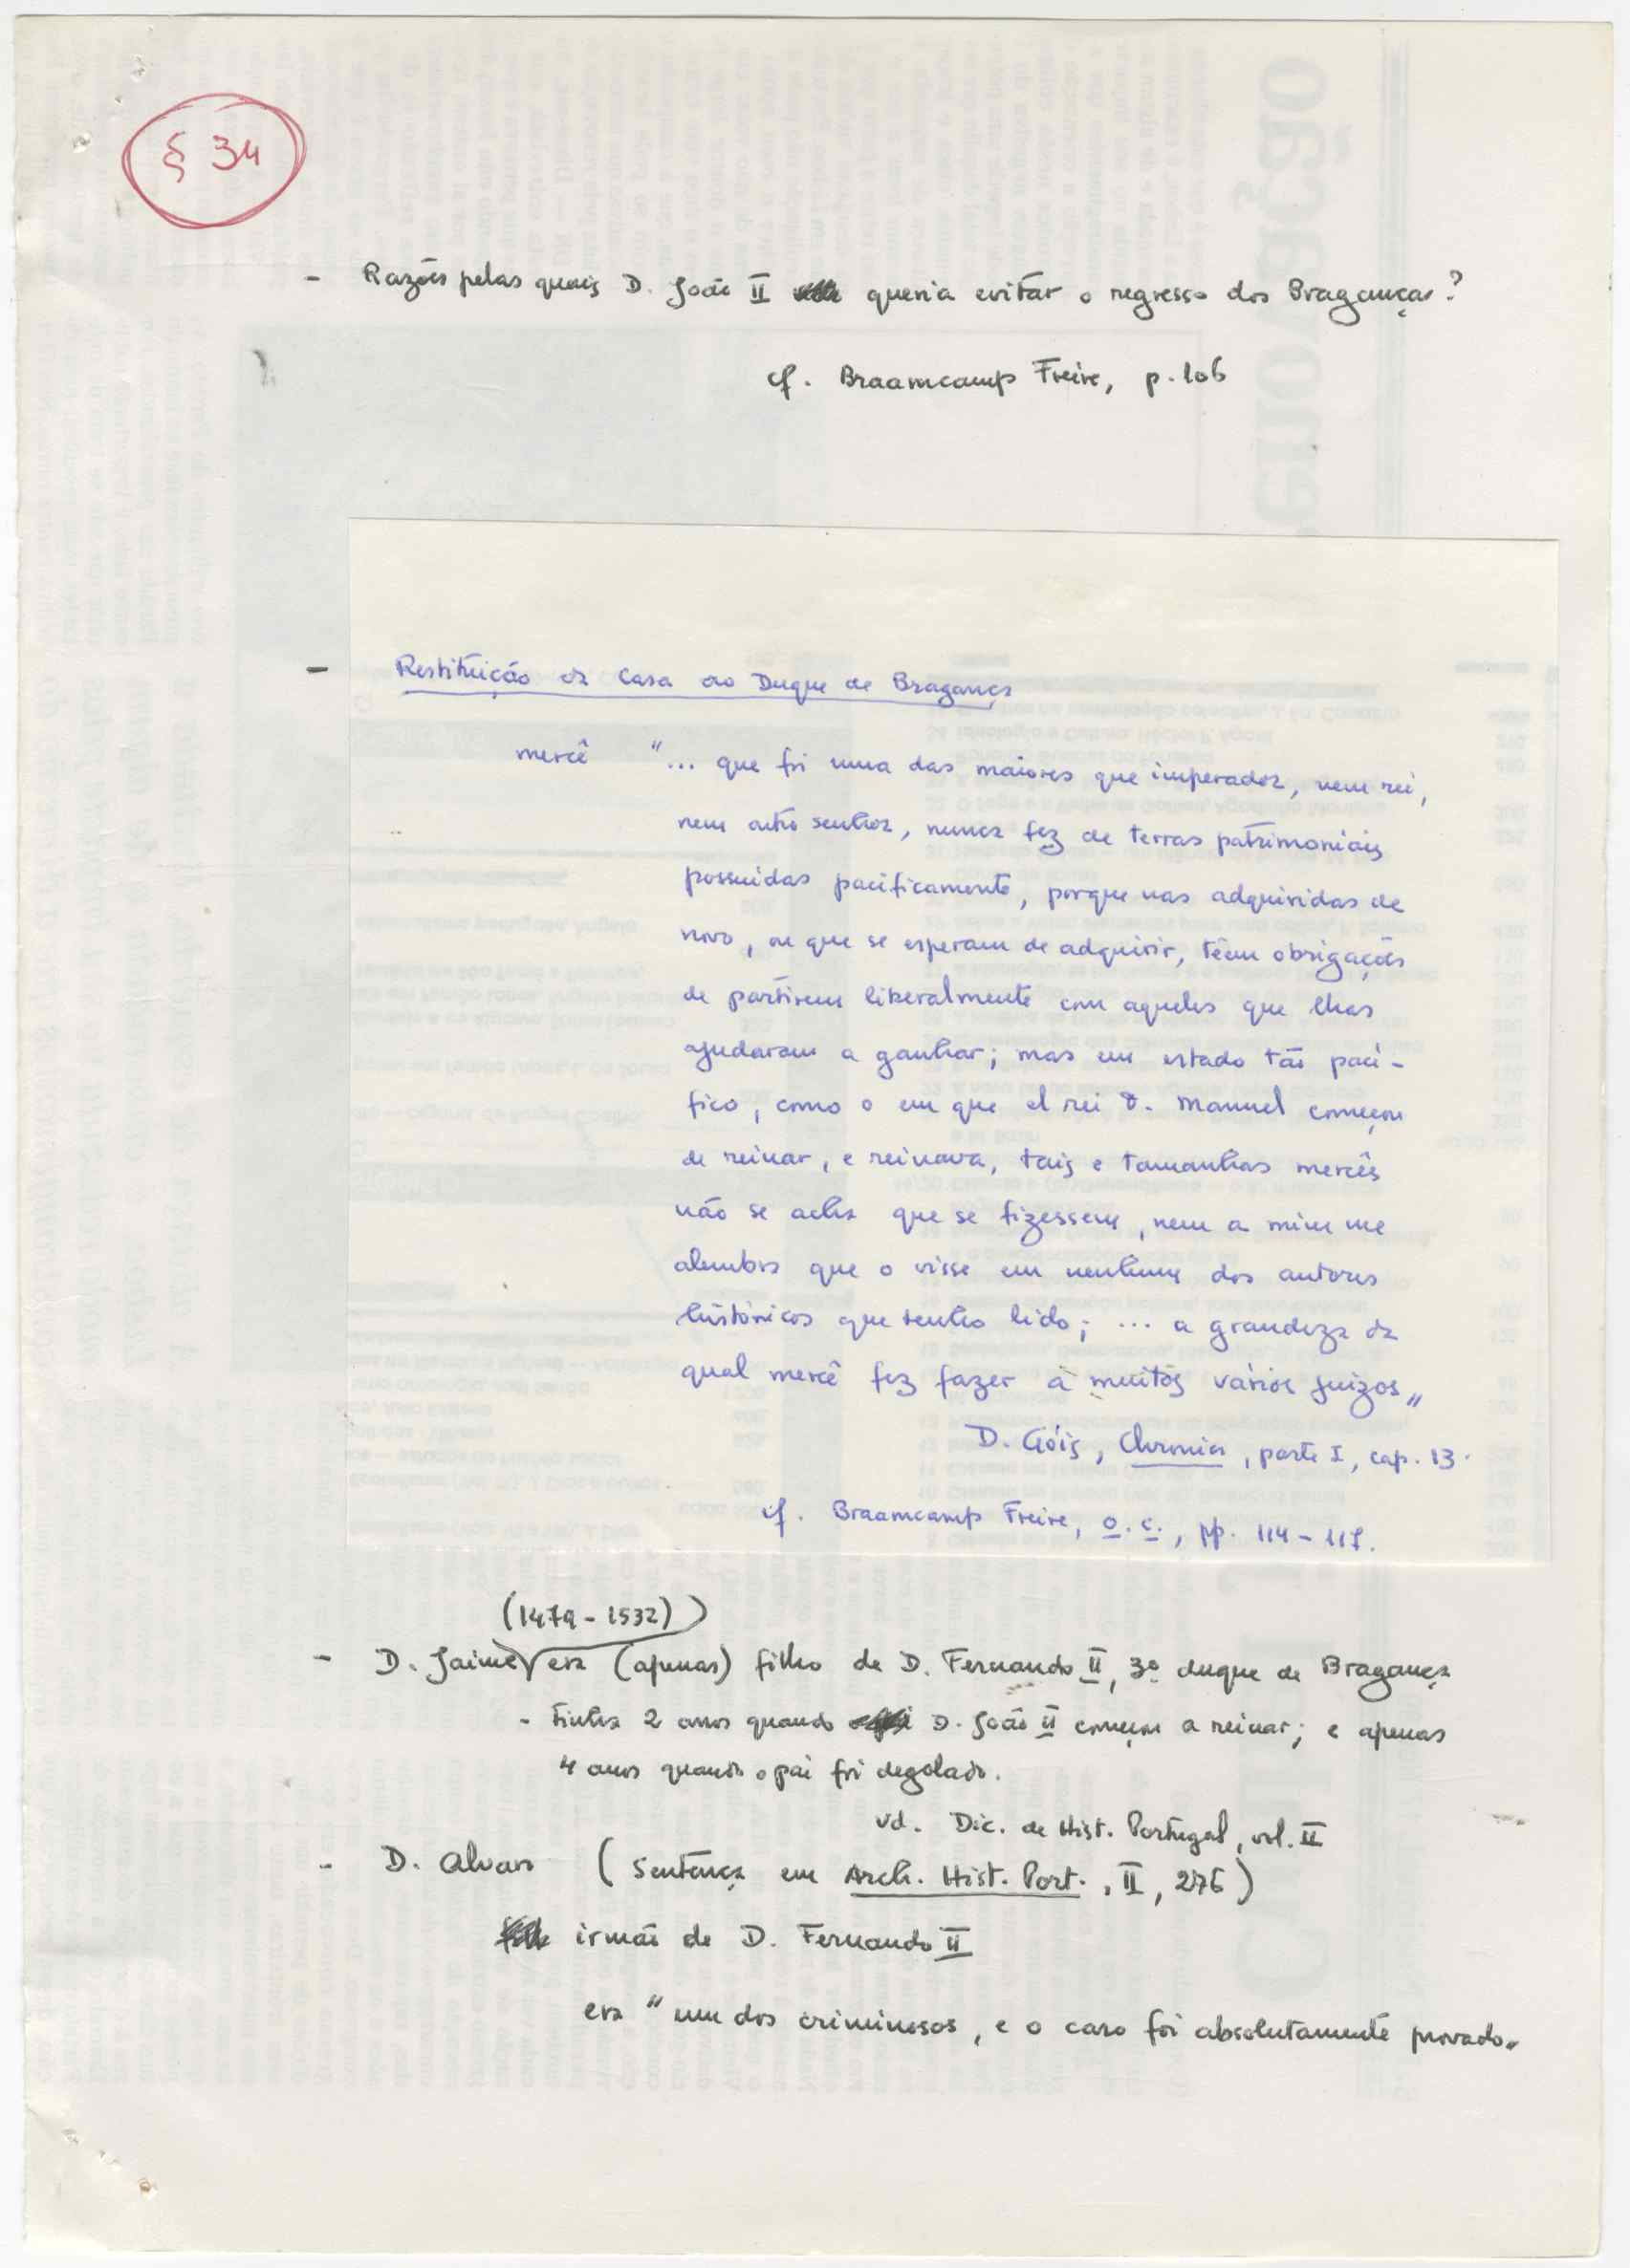 § 34
- Razões pelas quais D. João II queria evitar o regresso dos Braganças?
cf. Braamcamp Freire, p. 106
- Restituição da Casa ao Duque de Bragança
mercê "... que foi uma das maiores que imperador, nem rei,
nem outro senhor, nunca fez de terras patrimoniais
possuidas pacificamente, porque nas adquiridas de
novo, ou que se esperam de adquirir, têem obrigações
de partirem liberalmente com aqueles que lhas
ajudaram a ganhar; mas em estado tão paci-
fico, como o em que el rei D. Manuel começou
de reinar, e reinava, tais e tamanhas mercês
não se acha que se fizessem, nem a mim me
alembra que o visse em nenhum dos autores
históricos que tenho lido; ... a grandeza da
qual mercê fez fazer a muitos vários juizos"
D. Góis, Chronica, parte I, cap. 13.
cf. Braamcamp Freire, o. c., pp. 114-117.
(1479-1532)
- D. Jaime era (apenas) filho de D. Fernando II, 3º duque de Bragança
- tinha 2 anos quando D. João II começou a reinar; e apenas
4 anos quando o pai foi degolado.
vd. Dic. de Hist. Portugal, vol. II
- D. Alvaro (sentença em Arch. Hist. Port., II, 276)
irmão de D. Fernando II
era "um dos criminosos, e o caso foi absolutamente provado"